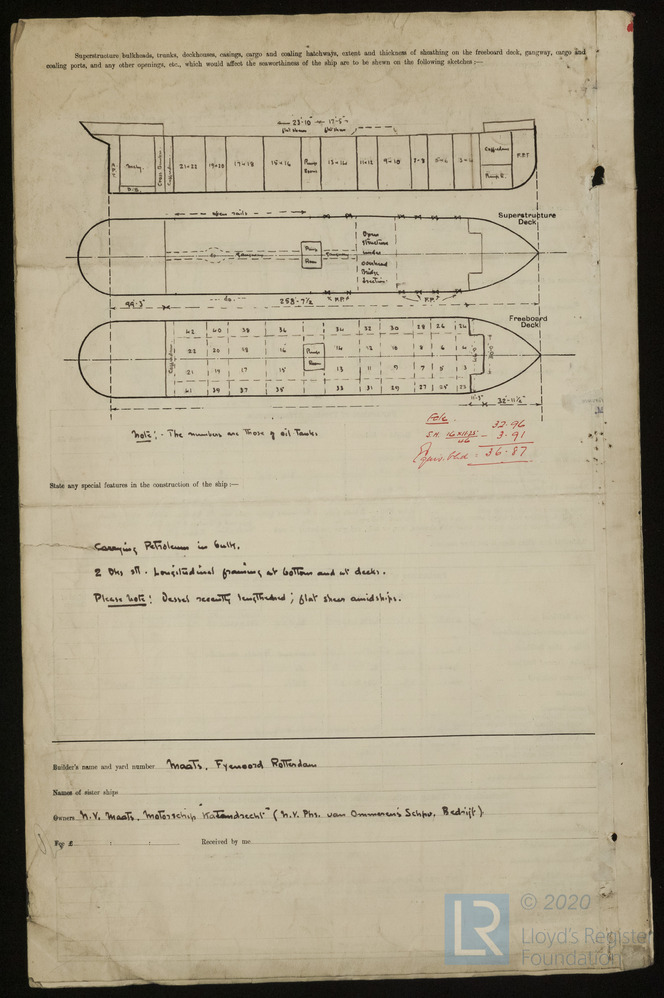 Superstructure bulkheads, trunks, deckhouses, casings, cargo and coaling hatchways, extent and thickness of sheathing on the freeboard deck, gangway, cargo and
coaling ports, and any other openings, etc., which would affect the seaworthiness of the ship are to be shewn on the following sketches:—
23'-10" 17'-5"
flat sheer flat sheer
Machy.
D.B.
Cross Bunker
Cofferdam
21+22 19+20 17+18 15+16 Pump Room 13+14 11+12 9+10 7+8 5+6 3+4
Cofferdam
Pump R.
F.P.T.
open rails
Superstructure
Deck
Gangway
Pump
Room
Gangway
Open
structure
under
overhead
Bridge
Section
99'-3" do. 258'-7½
Freeboard
Deck
Cofferdam
42 40 38 36 34 32 30 28 26 24
22 20 18 16 Pump 14 12 10 8 6 4
21 19 17 15 Room 13 11 9 7 5 3
41 39 37 35 33 31 29 27 25 23
32'-11½"
Note: - The numbers are those of oil tanks
Fo'c.
32.96
S.H. 3.91
Equiv. bhd = 36.87
State any special features in the construction of the ship:—
Carrying Petroleum in bulk.
2 Dks stl. Longitudinal framing at bottom and at decks.
Please note: Vessel recently lengthened; flat sheer amidships.
Builder's name and yard number Maats. Fyenoord Rotterdam
Names of sister ships
Owners N.V. Maats. Motorschip "Katendrecht" (N.V. Phs. van Ommeren's Schpv. Bedrijf).
Fee £ : : Received by me
LR
© 2020
Lloyd's Register
Foundation